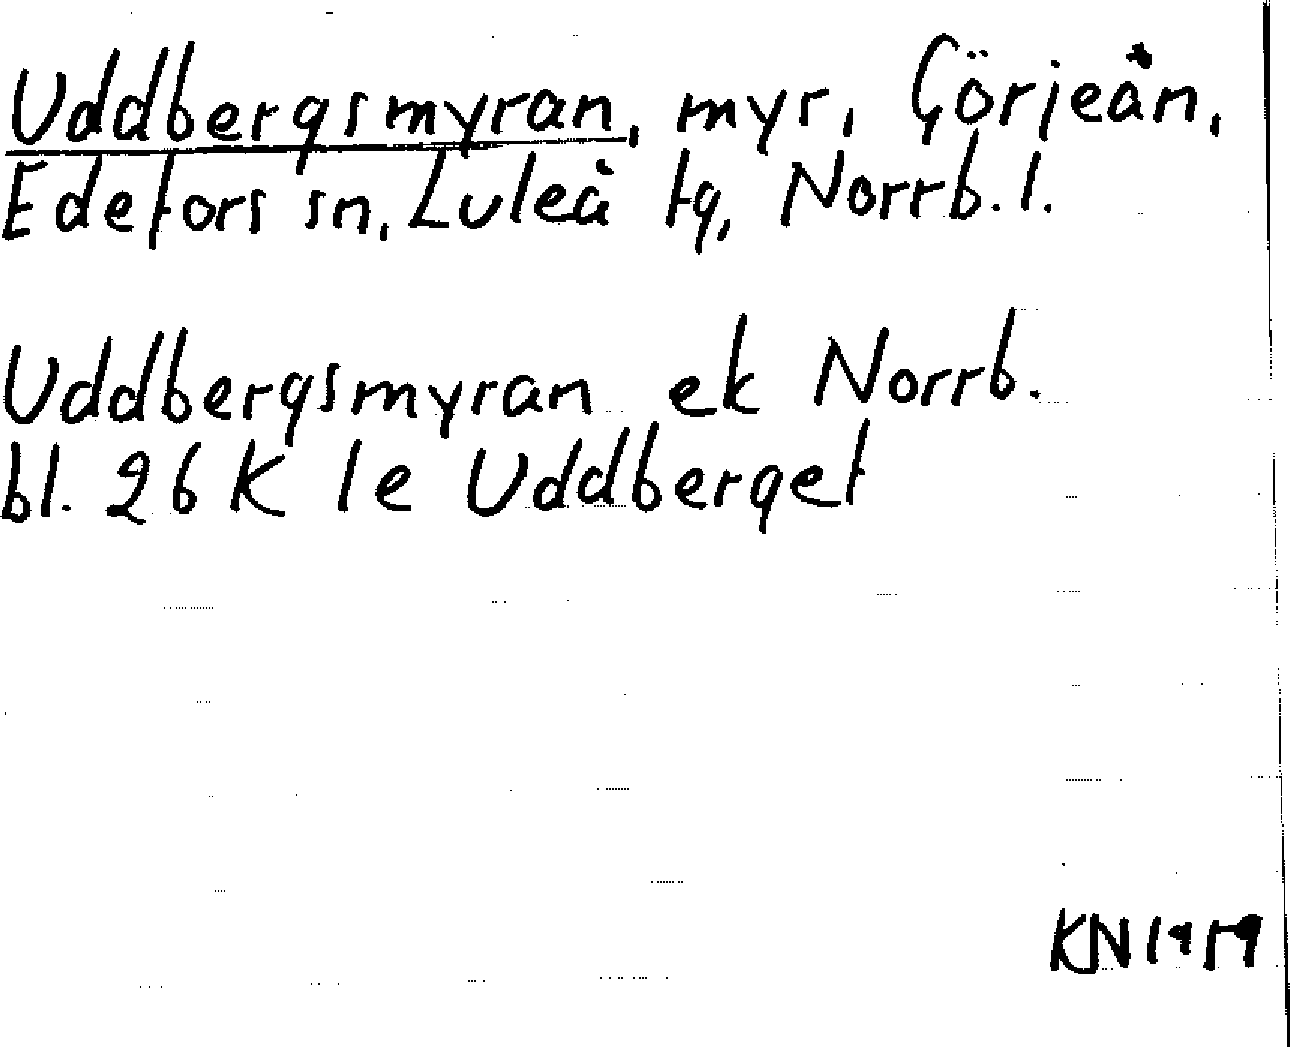 Uddbergsmyran, myr, Görjeån,
Edefors sn, Luleå tg, Norrb. l.
Uddbergsmyran ek Norrb.
bl. 26 K 1e Uddberget
KN 1959